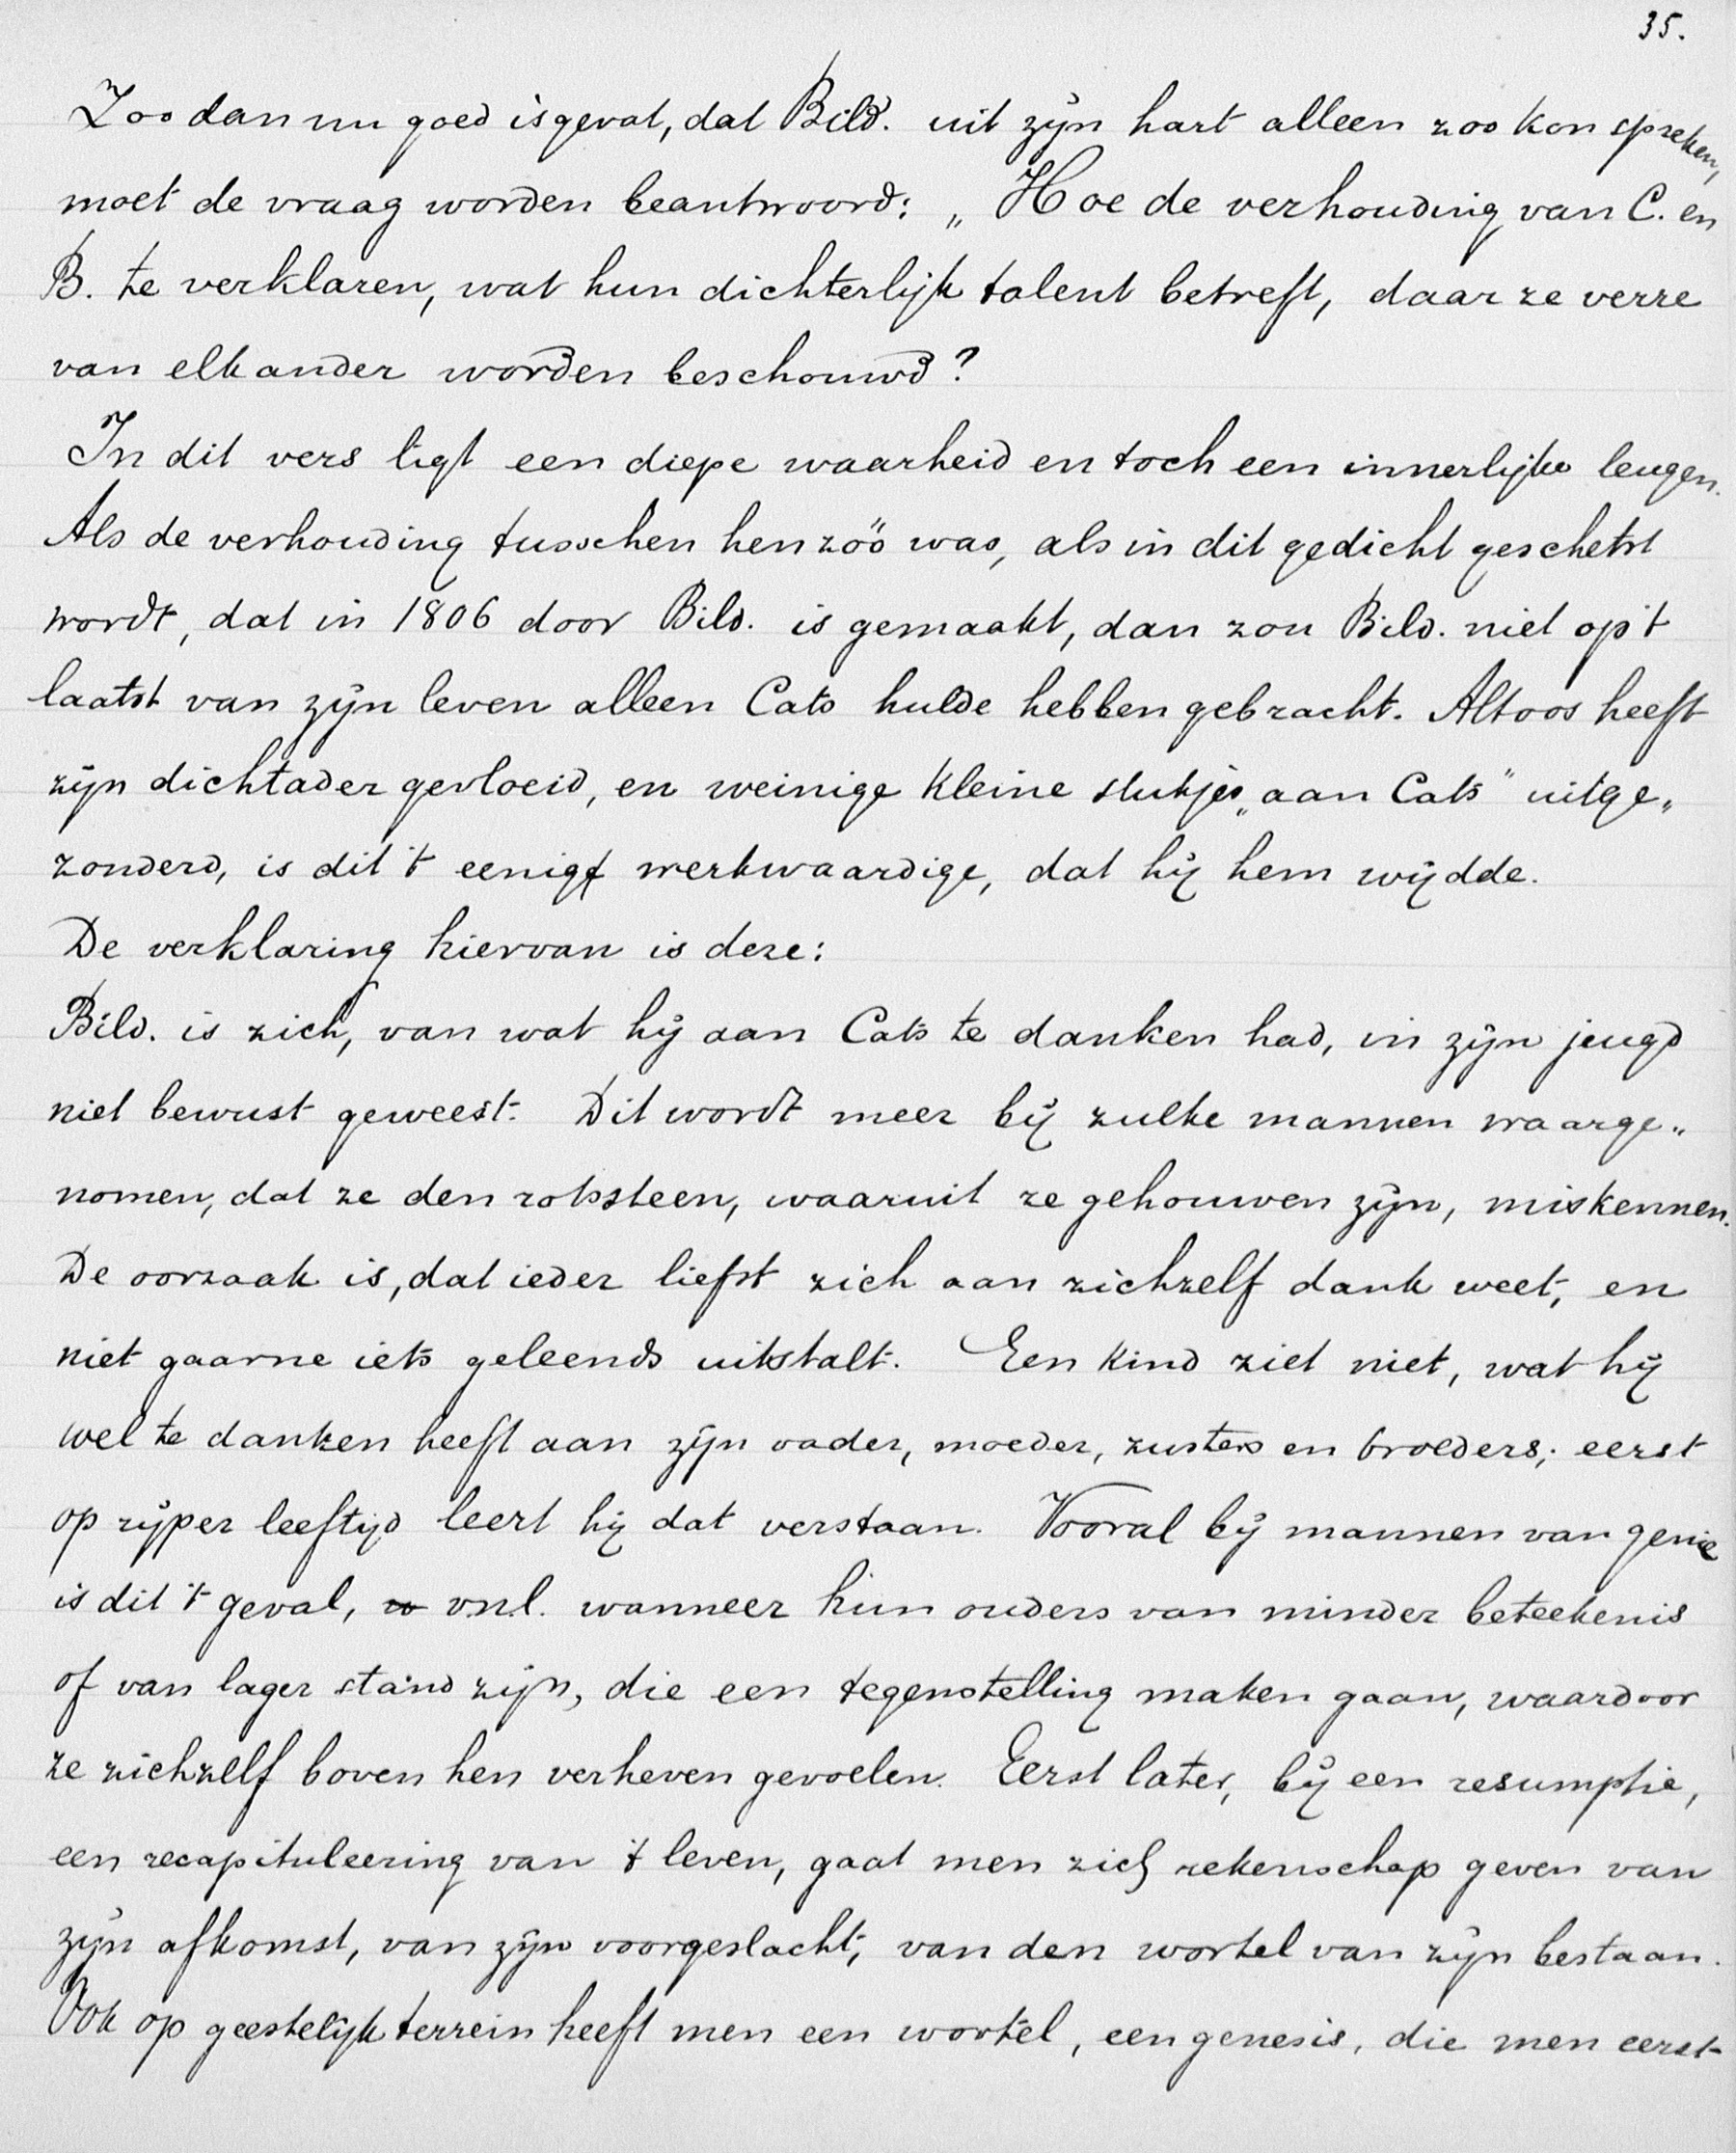 35.
Zoo dan nu goed is gevat, dat Bild. uit zijn hart alleen zoo kon spreken,
moet de vraag worden beantwoord: „Hoe de verhouding van C. en
B. te verklaren, wat hun dichterlijk talent betreft, daar ze verre
van elkander worden beschouwd?
In dit vers ligt een diepe waarheid en toch een innerlijke leugen.
Als de verhouding tusschen hen zóó was, als in dit gedicht geschetst
wordt, dat in 1806 door Bild. is gemaakt, dan zou Bild. niet op 't
laatst van zijn leven alleen Cats hulde hebben gebracht. Altoos heeft
zijn dichtader gevloeid, en weinige kleine stukjes „aan Cats" uitge„
zonderd, is dit 't eenige merkwaardige, dat hij hem wijdde.
De verklaring hiervan is deze:
Bild. is zich, van wat hij aan Cats te danken had, in zijn jeugd
niet bewust geweest. Dit wordt meer bij zulke mannen waarge„
nomen, dat ze den rotssteen, waaruit ze gehouwen zijn, miskennen.
De oorzaak is, dat ieder liefst zich aan zichzelf dank weet, en
niet gaarne iets geleends uitstalt. Een kind ziet niet, wat hij
wel te danken heeft aan zijn vader, moeder, zusters en broeders; eerst
op rijper leeftijd leert hij dat verstaan. Vooral bij mannen van genie
is dit 't geval, vnl. wanneer hun ouders van minder beteekenis
of van lager stand zijn, die een tegenstelling maken gaan, waardoor
ze zichzelf boven hen verheven gevoelen. Eerst later, bij een resumptie,
een recapituleering van 't leven, gaat men zich rekenschap geven van
zijn afkomst, van zijn voorgeslacht, van den wortel van zijn bestaan.
Ook op geestelijk terrein heeft men een wortel, een genesis, die men eerst